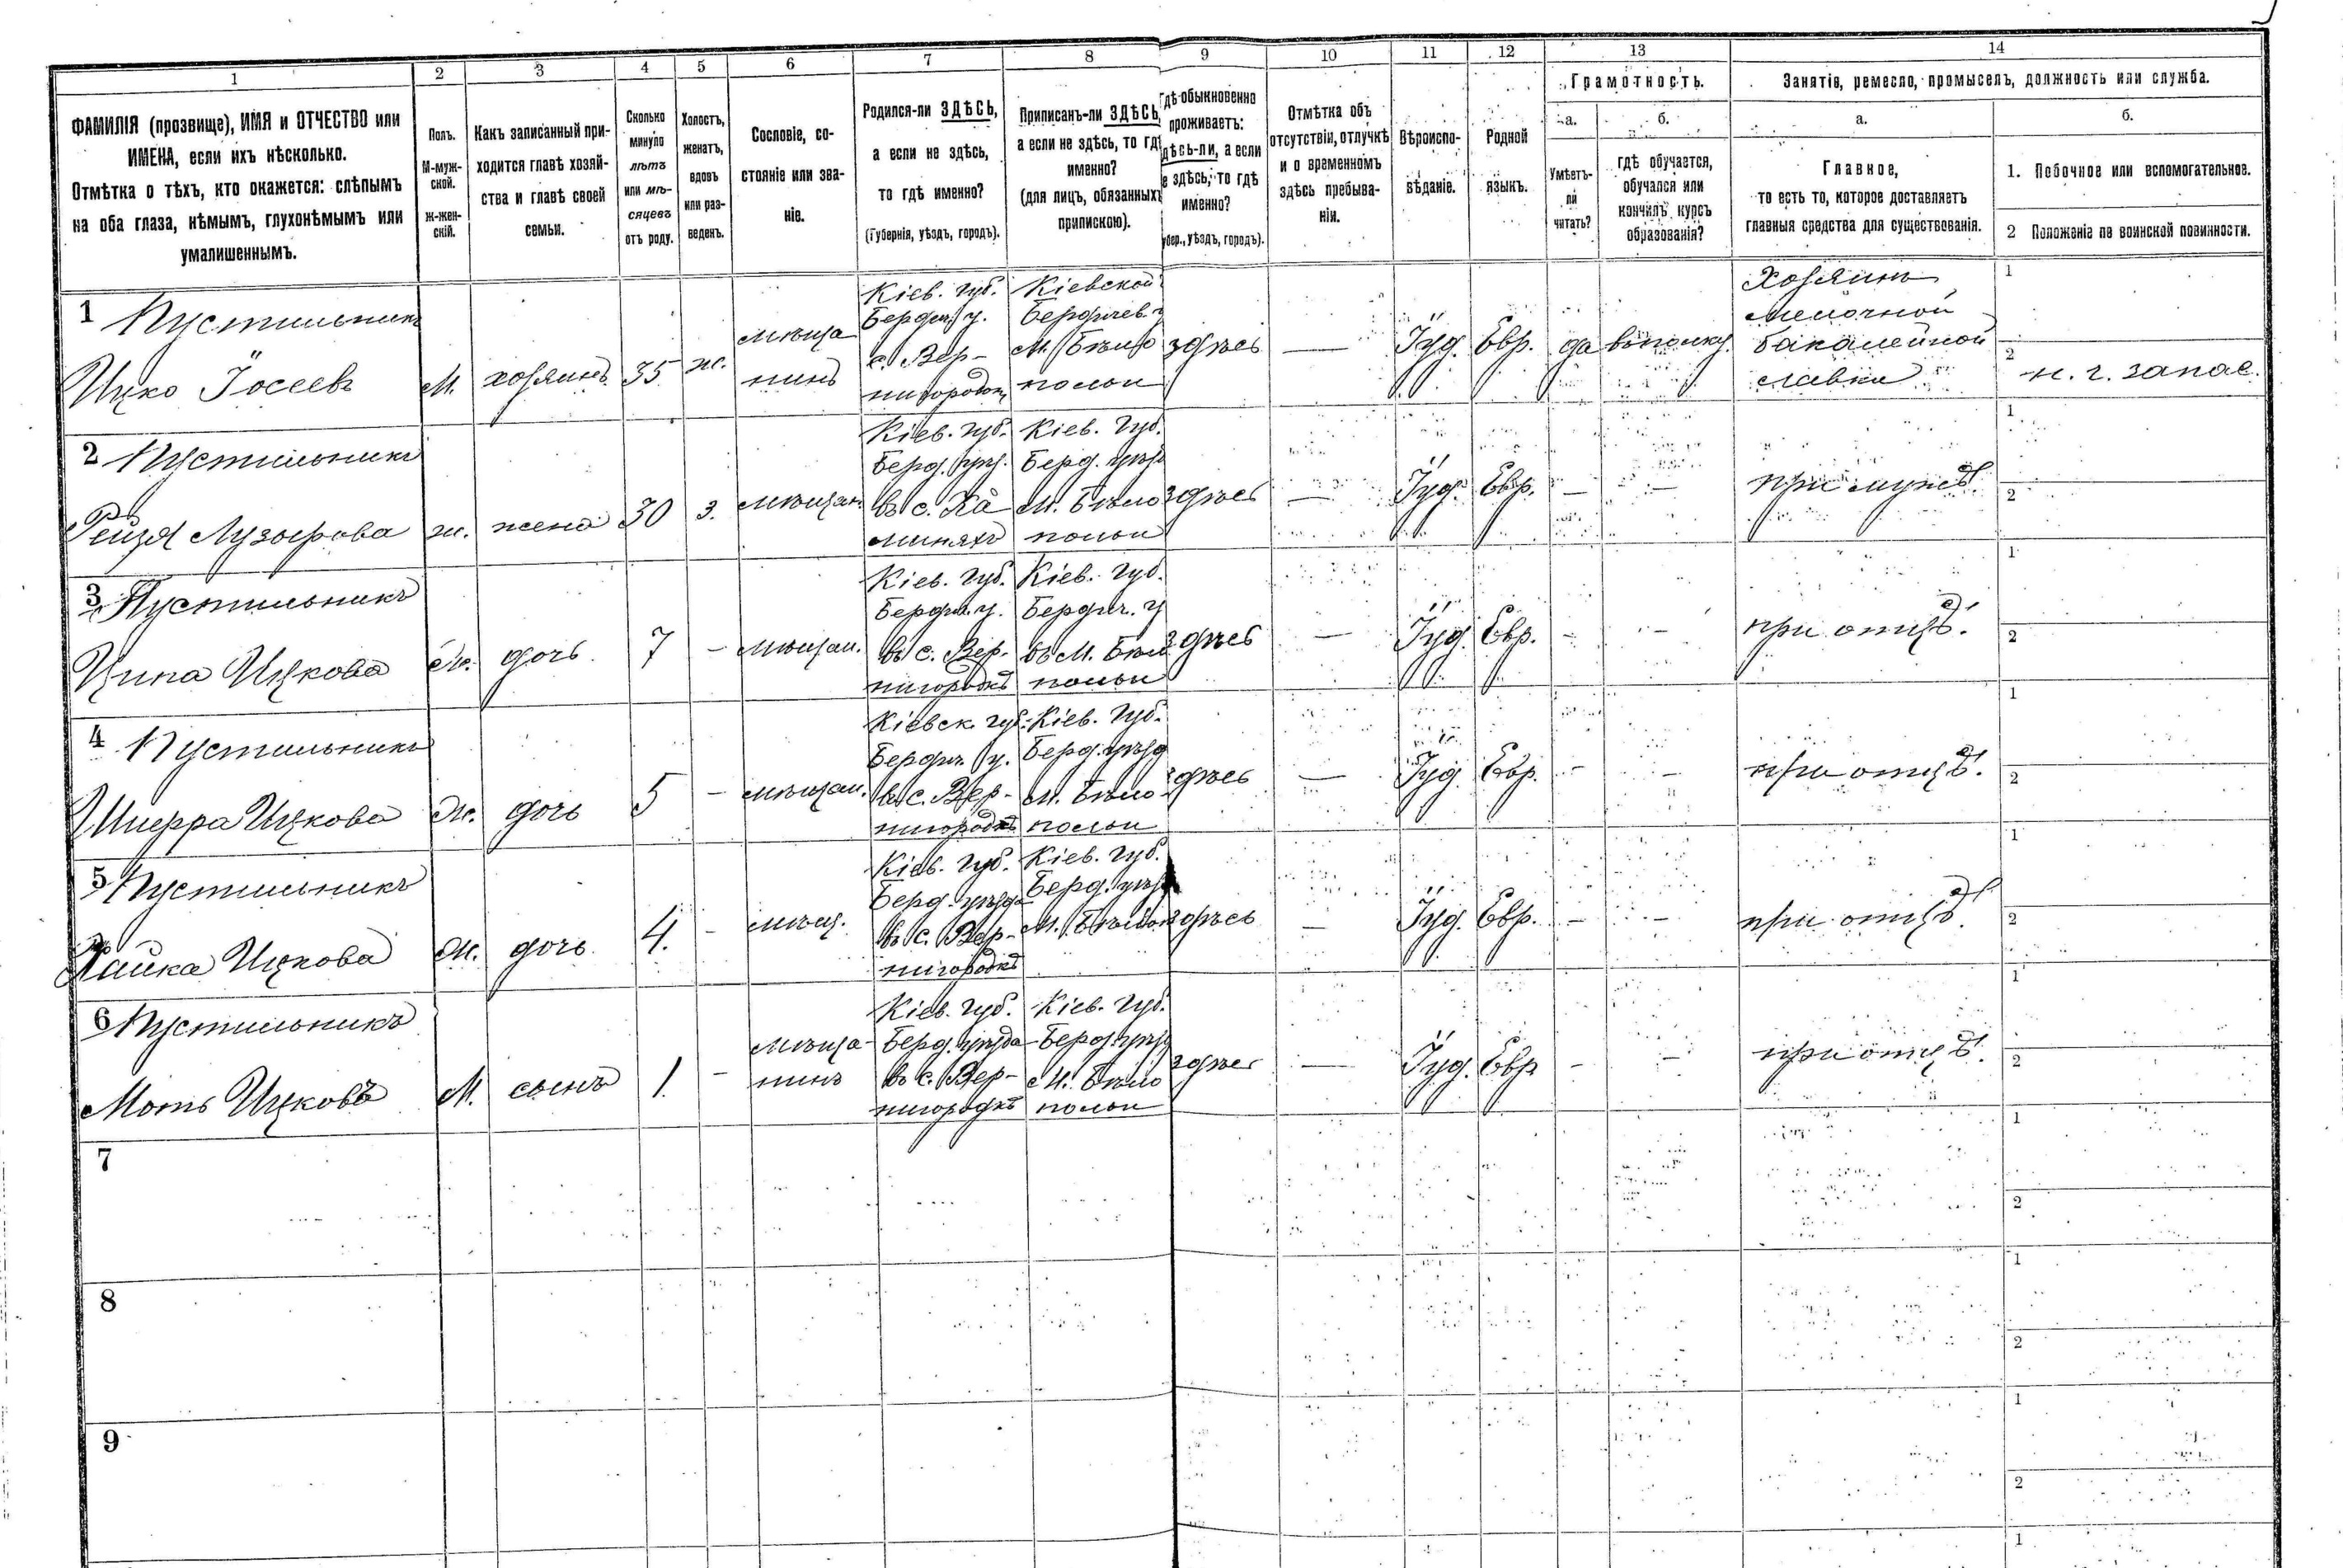 1
2
3
4
5
6
7
8
9
10
11
12
13
14
ФАМИЛІЯ (прозвище), ИМЯ и ОТЧЕСТВО или
ИМЕНА, если ихъ нѣсколько.
Отмѣтка о тѣхъ, кто окажется: слѣпымъ
на оба глаза, нѣмымъ, глухонѣмымъ или
умалишеннымъ.
Полъ.
М-муж-
ской.
ж-жен-
скій.
Какъ записанный при-
ходится главѣ хозяй-
ства и главѣ своей
семьи.
Сколько
минуло
лѣтъ
или мѣ-
сяцевъ
отъ роду.
Холостъ,
женатъ,
вдовъ
или раз-
веденъ.
Сословіе, со-
стояніе или зва-
ніе.
Родился-ли ЗДѢСЬ,
а если не здѣсь,
то гдѣ именно?
(Губернія, уѣздъ, городъ).
Приписанъ-ли ЗДѢСЬ,
а если не здѣсь, то гдѣ
именно?
(для лицъ, обязанныхъ
припискою).
гдѣ обыкновенно
проживаетъ:
дѣсь-ли, а если
е здѣсь, то гдѣ
именно?
убер., уѣздъ, городъ).
Отмѣтка объ
отсутствіи, отлучкѣ
и о временномъ
здѣсь пребыва-
ніи.
Вѣроиспо-
вѣданіе.
Родной
языкъ.
Грамотность.
а.
б.
Умѣетъ-
ли
читать?
гдѣ обучается,
обучался или
кончилъ курсъ
образованія?
Занятія, ремесло, промыселъ, должность или служба.
а.
б.
Главное,
то есть то, которое доставляетъ
главныя средства для существованія.
1. Побочное или вспомогательное.
2 Положеніе по воинской повинности.
1 Пустильникъ
Ицко Іосеевъ
М.
хозяинъ
35
ж.
мѣща
нинъ
Кіев. губ.
Бердич. у.
с. Вер-
нигородкѣ
Кіевской
Бердичев. у
М. Бѣло
полои
здѣсь
—
Іуд.
Евр.
да
Хозяинъ
мелочной
бакалейной
лавки
1
2
н. ч. запас.
2 Пустильникъ
Рейзя Лузорова
ж.
жена
30
з.
мѣщан.
Кіев. губ.
Берд. уѣз.
въ с. Ка
минахъ
Кіев. Губ.
Берд. уѣзд
М. Бѣло
полои
здѣсь
—
Іуд.
Евр.
—
—
при мужѣ.
1
2
3 Пустильникъ
Ципа Ицкова
Ж.
дочь
7
-
мѣщан.
Кіев. Губ.
Бердич. у.
въ с. Вер-
нигородкѣ
Кіев. Губ.
Бердич. у
въ М. Бѣло
полои
здѣсь
—
Іуд.
Евр.
-
-
при отцѣ.
1
2
4 Пустильникъ
Шперра Ицкова
Ж.
дочь
5
-
мѣщан.
Кіевск. губ.
Бердич. у.
въ с. Вер-
нигородкѣ
Кіев. Губ.
Берд. уѣзд
М. Бѣло
полои
здѣсь
—
Іуд.
Евр.
-
-
при отцѣ.
1
2
5 Пустильникъ
Хайка Ицкова
Ж.
дочь
4.
-
мѣщ.
Кіев. Губ.
Берд. уѣзда
въ с. Вер-
нигородкѣ
Кіев. Губ.
Берд. уѣзд
М. Бѣлоп
здѣсь
—
Іуд.
Евр.
-
-
при отцѣ.
1
2
6 Пустильникъ
Моть Ицковъ
М.
сынъ
1.
-
мѣща-
нинъ
Кіев. Губ.
Берд. уѣзда
въ с. Вер-
нигородкѣ
Кіев. Губ.
Берд. уѣзд
М. Бѣло
полои
здѣс
—
Іуд.
Евр
-
-
при отцѣ.
1
2
7
1
2
8
1
2
9
1
2
1